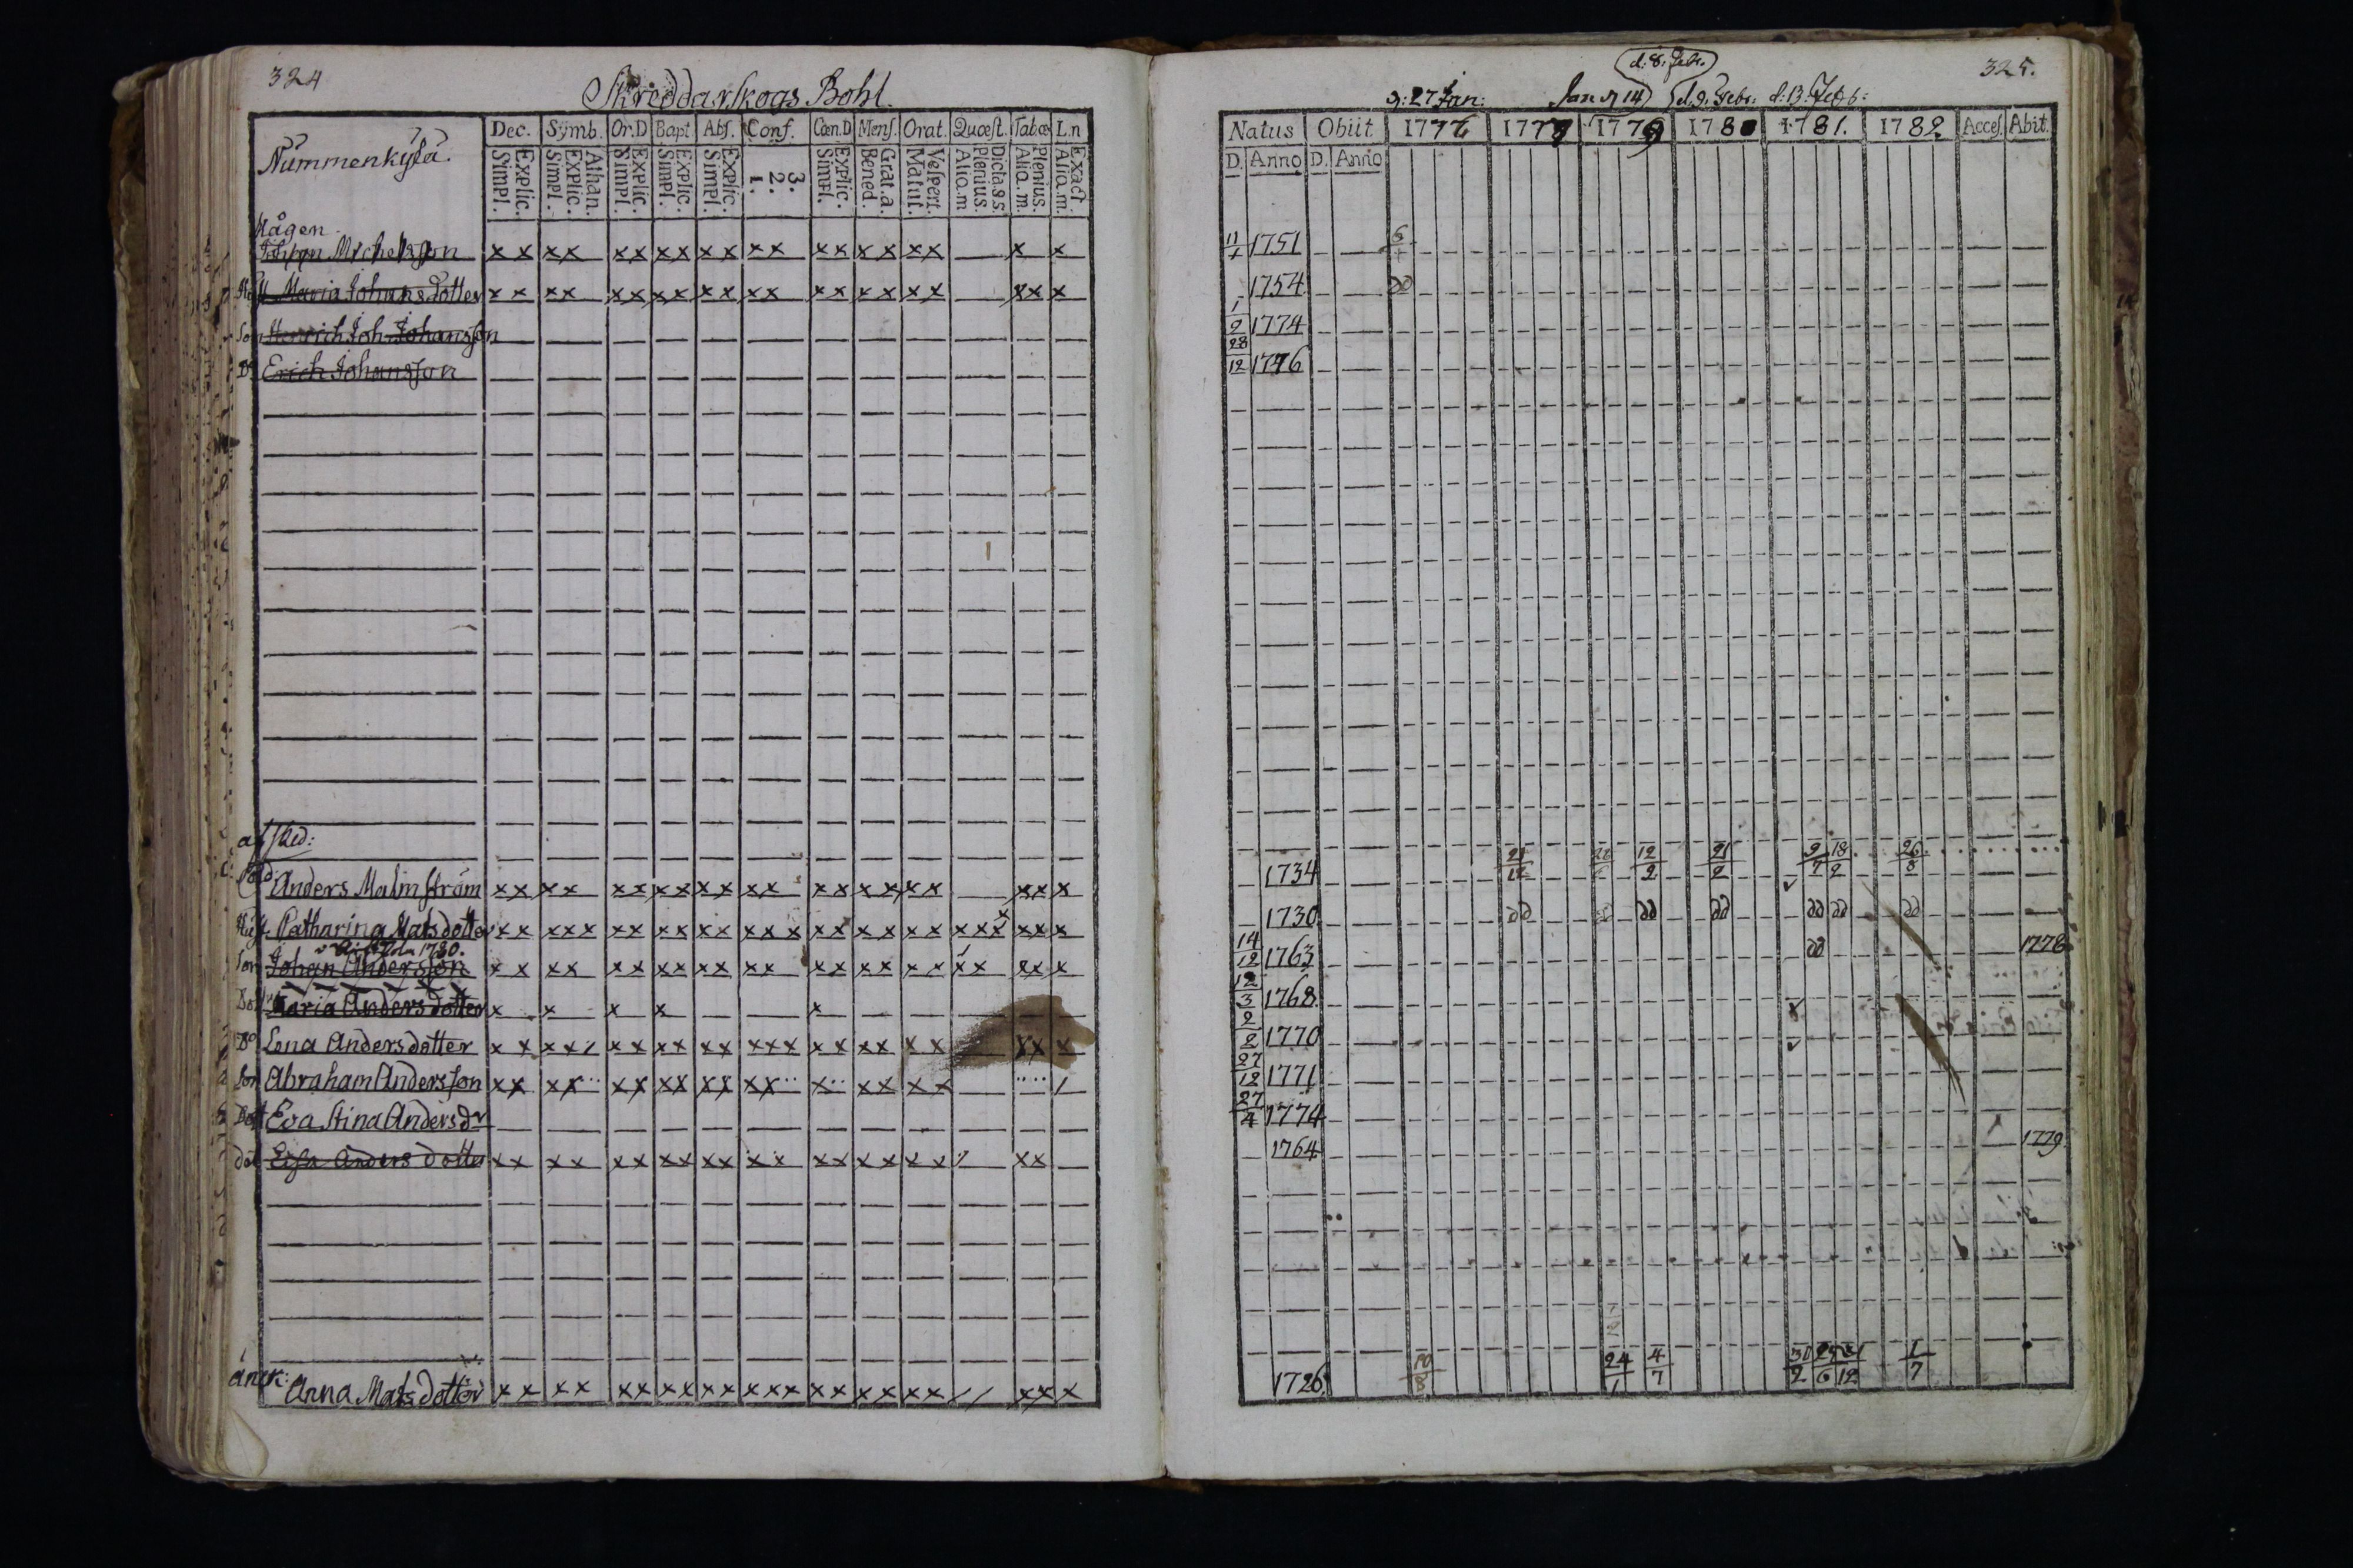 324
Skreddarskogs Bohl.
Nummenkÿlä.
Dec. Symb. Or.D Bapt. Abs. Conf. Cœn.D Mens. Orat. Quæst. Tabæ L.n
Simpl. Explic. Simpl. Explic. Athan. Simpl. Explic. Simpl. Explic. Simpl. Explic. 1. 2. 3. Simpl. Explic. Bened. Grat.a. Matut. Vespert. Aliq.m Plenius. Dicta s.s. Aliq.m. Plenius. Aliq.m. Exact.
Hågen
Johan Michelsson x x x x x x x x x x x x x x x x x x x x
H. Maria Johans dotter x x x x x x x x x x x x x x x x x x x x x
Son Henrich Joh. Johansson
Do Erich Johansson
afsked:
Sold Anders Malmström x x x x x x x x x x x x x x x x x x x x x
Hust. Catharina Mats dotter x x x x x x x x x x x x x x x x x x x x x x x x x x x
1780.
Son Johan Andersson x x x x x x x x x x x x x x x x x x x x x x x
Dot Maria Anders dotter x x x x x
Do Lena Andersdotter x x x x / x x x x x x x x x x x x x x x x x x x
Son Abraham Andersson x x x x x x x x x x x x x x x x x /
Dott Eva Stina Andersdr
dot Eisa Anders dotter x x x x x x x x x x x x x x x x x x / x x
änck:
Anna Mats dotter x x x x x x x x x x x x x x x x x x x / / x x x
325.
d: 8: Febr.
d: 27 Jan: Jan d 14 d. 9. Febr: d: 13. Febr:
Natus Obiit 1777 1778 1779 1780 1781. 1782 Acces. Abit.
D. Anno D. Anno
11 1751 6
1754 dd
1/9 1774
28/12 1776
1734 21/12 12/2 21/2 9/7 18/2 26/8
1730 dd dd dd dd dd dd
14/12 1763 dd 1778
12/3 1768
2/2 1770
27/12 1771
27/4 1774
1764 1779
1726 10/8 24/1 4/7 30/2 6 12 1/7